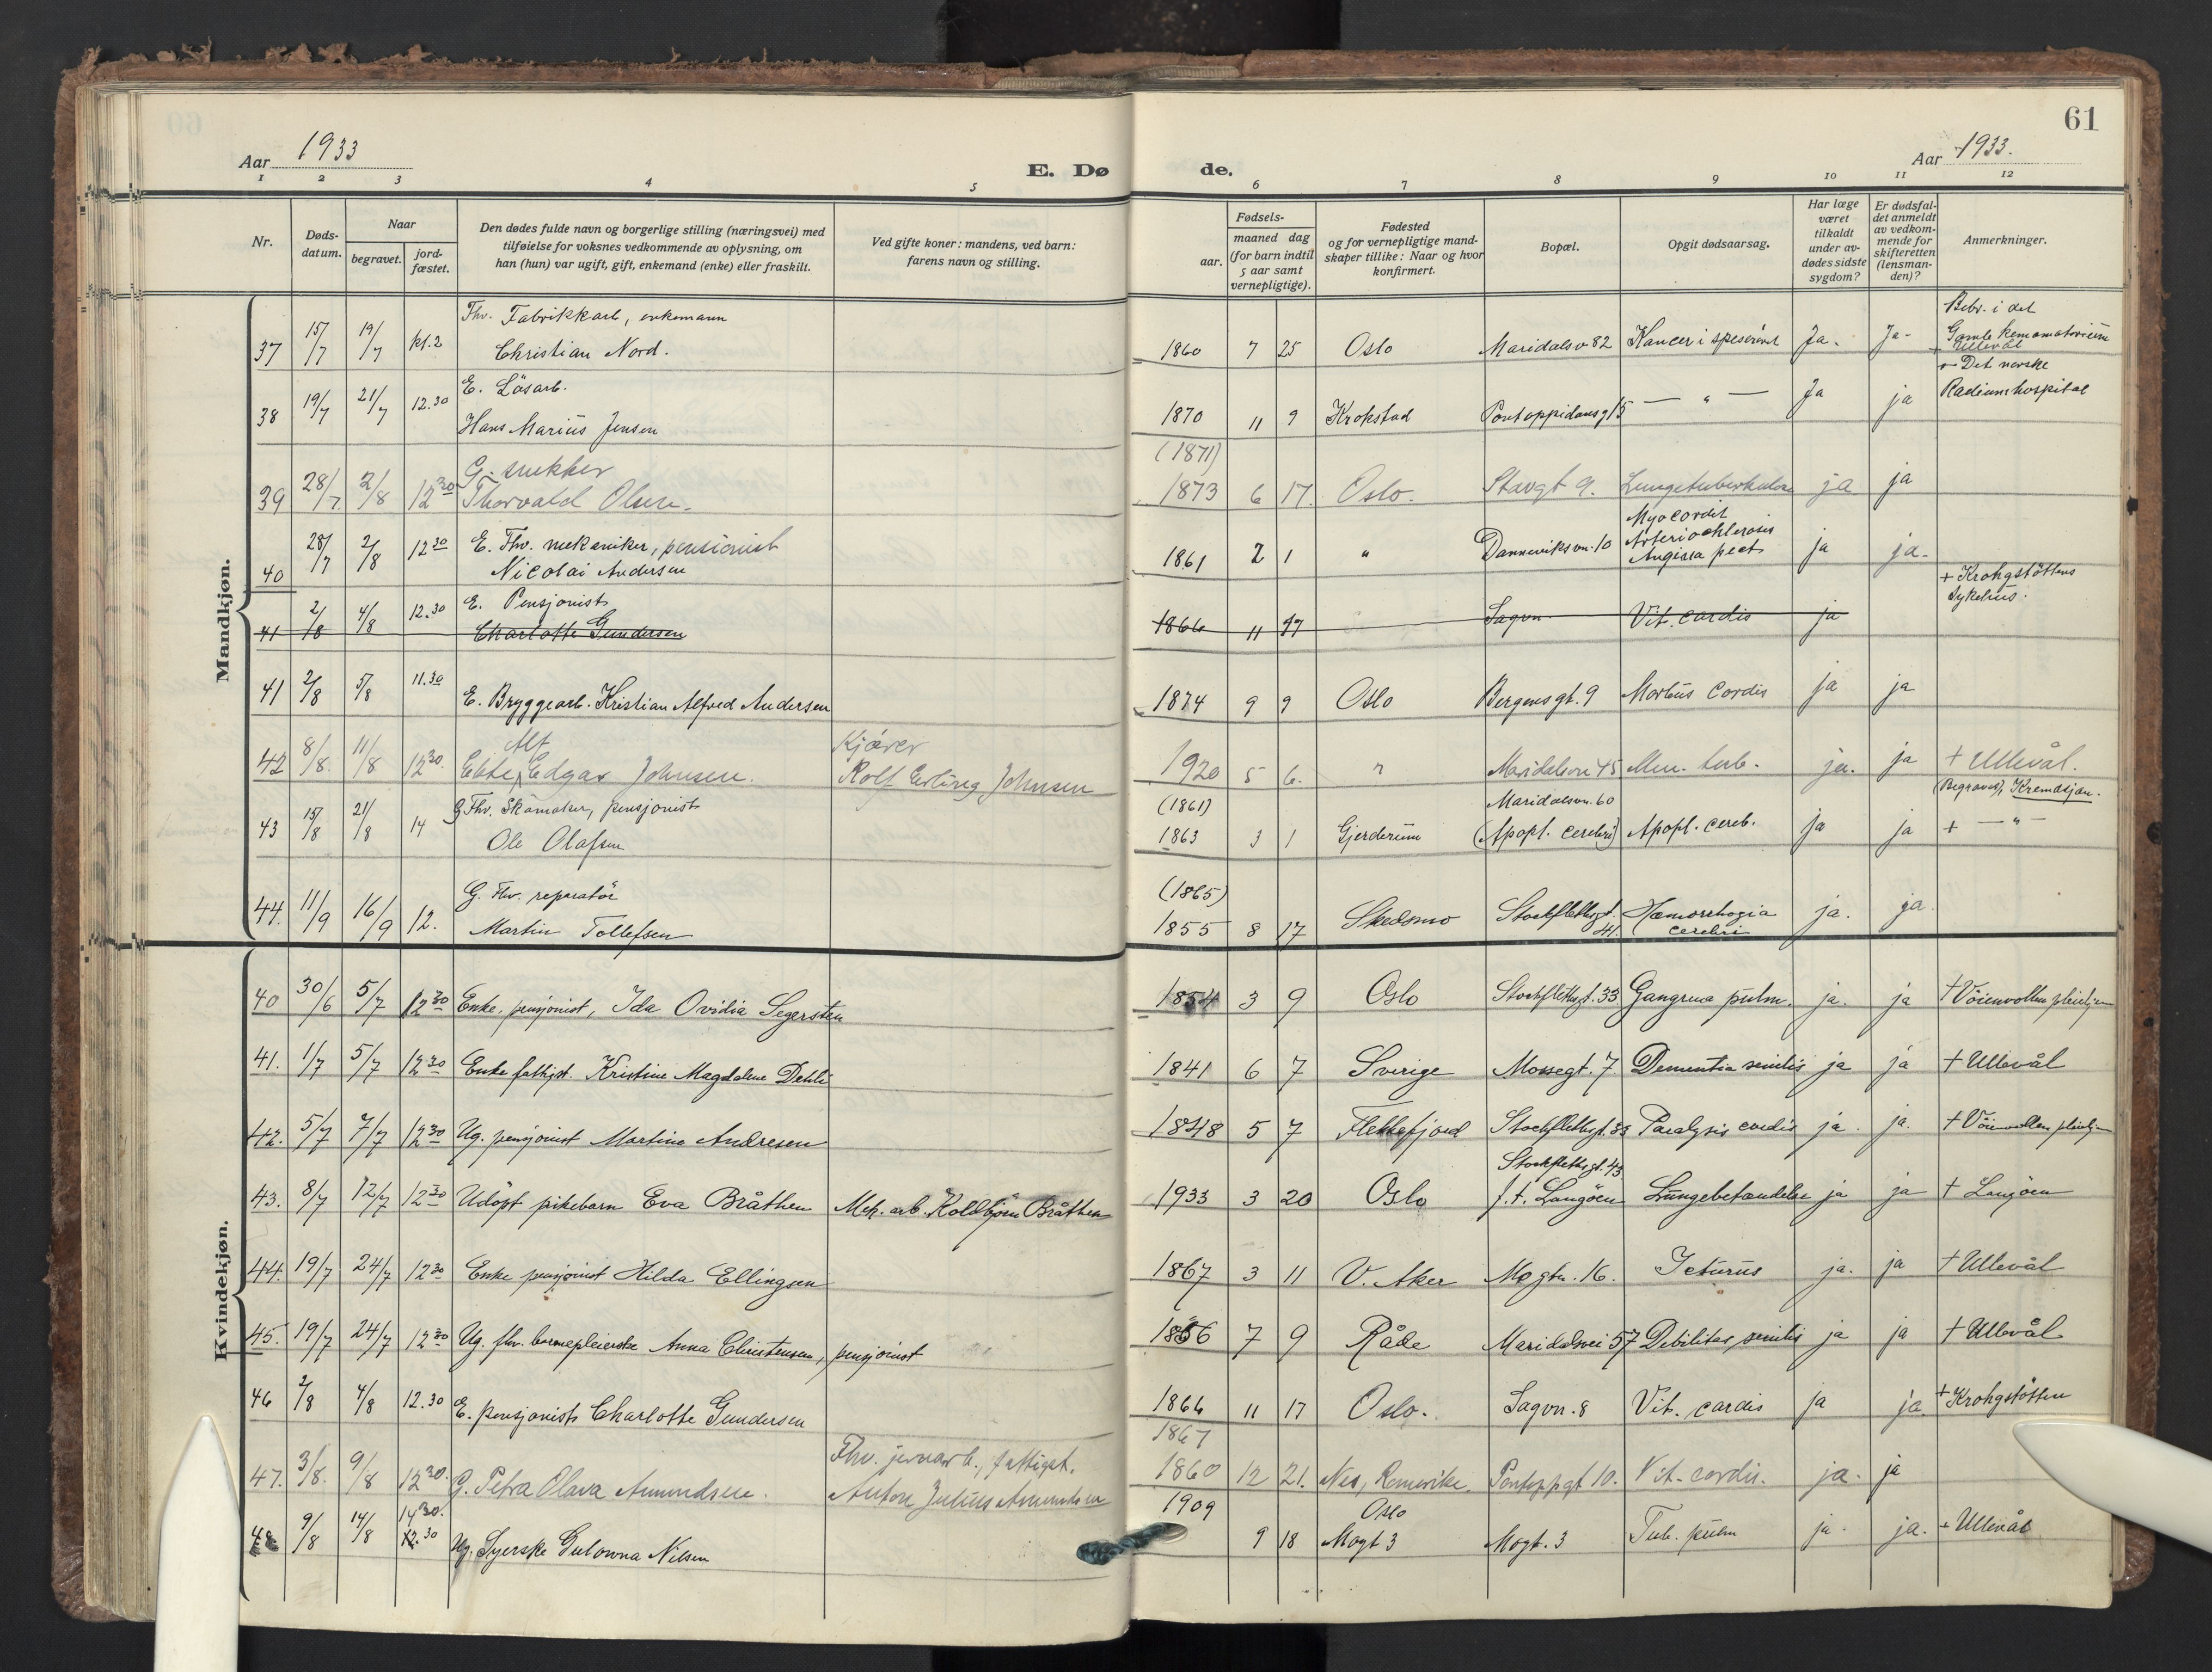 61
Aar 1933
E. Dø de.
Aar 1933.
1 2 3 4 5 6 7 8 9 10 11 12
Nr.
Døds-
datum.
Naar
begravet.
jord-
fæstet.
Den dødes fulde navn og borgerlige stilling (næringsvei) med
tilføielse for voksnes vedkommende av oplysning, om
han (hun) var ugift, gift, enkemand (enke) eller fraskilt.
Ved gifte koner: mandens, ved barn:
farens navn og stilling.
Fødsels-
aar.
maaned dag
(for barn indtil
5 aar samt
vernepligtige).
Fødested
og for vernepligtige mand-
skaper tillike: Naar og hvor
konfirmert.
Bopæl.
Opgit dødsaarsag.
Har læge
været
tilkaldt
under av-
dødes sidste
sygdom?
Er dødsfal-
det anmeldt
av vedkom-
mende for
skifteretten
(lensman-
den)?
Anmerkninger.
Mandkjøn.
Thv. Fabrikkarb, enkemann
37 15/7 19/7 kl.2 Christian Nord. 1860 7 25 Oslo Maridalsv 82 Kancer i spiserøret Ja. Ja-
Bebr. i det
Gamle
+ Ullevål
+ Det norske
Radiumhospital
E. Løsarb.
38 19/7 21/7 12.30 Hans Marius Jensen 1870 11 9 Krokstad Pontoppidansg 15 — " — Ja ja
G. snekker (1871)
39 28/7 2/8 12 30 Thorvald Olsen. 1873 6 17. Oslo. Stavgt 9. Lungetuberkulose ja ja
E. Thv. mekaniker, pensionist
40 28/7 2/8 12 30 Nicolai Andersen 1861 2 1 " Danneviksvn. 10 Myocordit
Arteriochlerosis
Angina pect ja ja-
E. Pensjonist
41 2/8 4/8 12.30 Charlotte Gundersen 1866 11 17 Sagvn Vit. cardis ja
+ Krohgstöttens
Sykehus.
41 2/8 5/8 11.30 E. Bryggearb. Kristian Alfred Andersen 1874 9 9 Oslo Bergensgt. 9 Morbus Cordis ja ja
Alf Kjører
42 8/8. 11/8 12 30. Edgar Johnsen. Rolf Erling Johnsen 1920 5 6. " Maridalsvn 45 Men. tub. ja. ja + Ullevål.
(Begravet), Kremasjon.
G Thv. Skömaker, pensjonist (1861) Maridalsvn. 60
43 15/8 21/8 14 Ole Olafsen 1863 3 1 Gjerderum (Apopl. cerebri) Apopl. cereb. ja ja + — " —
G. Thv. reparatör (1865)
44. 11/9 16/9 12. Martin Tollefsen 1855 8 17 Skedsmo Stockflethsgt. 41. Hæmorrhagia
cerebri ja. ja.
Kvindekjøn.
40 30/6 5/7 12 30 Enke, pensjonist, Ida Ovidia Segersten 1854 3 9 Oslo Stockflethsgt. 33 Gangrena pulm. ja. ja + Vöienvollen pleiehjem
41. 1/7 5/7 12 30 Enke fattigst. Kristine Magdalene Dehli 1841 6 7 Sverige Mossegt. 7. Dementia senilis ja ja + Ullevål
42. 5/7 7/7 12 30 Ug. pensjonist Martine Andresen 1848 5 7 Flekkefjord Stockflethsgt. 33 Paralysis cordis ja. ja. + Vöienvollen pleiehjem
Stockflethsgt. 43
43. 8/7 12/7 12 30 Udöpt pikebarn Eva Bråthen Mek. arb. Koldbjörn Bråthen 1933 3 20 Oslo f. t. Langöen Lungebetændelse ja ja + Langöen
44. 19/7 24/7 12 30 Enke pensjonist Hilda Ellingsen 1867 3 11 V. Aker Mogtn. 16. Icturus ja. ja + Ullevål
45. 19/7 24/7 12 30 Ug. fhv. barnepleierske Anna Christensen, pensjonist 1856 7 9 Råde Maridalsvei 57 Debilitas senilis ja ja + Ullevål
46 2/8 4/8 12.30 E. pensjonist Charlotte Gundersen 1866 11 17 Oslo. Sagvn. 8 Vit. cardis ja ja + Krohgstötten
Fhv. jernarb., fattigst. 1867
47. 3/8. 9/8 12 30. G. Petra Olava Amundsen. Anton Julius Amundsen 1860 12 21. Nes, Romerike. Pontoppgt 10. Vit. cordis. ja. ja
14 30. 1909 Oslo
48 9/8 14/8 12.30 Ug. Syerske Gulowna Nilsen 9 18 Mogt 3 Mogt. 3 Tub. pulm ja. ja. + Ullevål